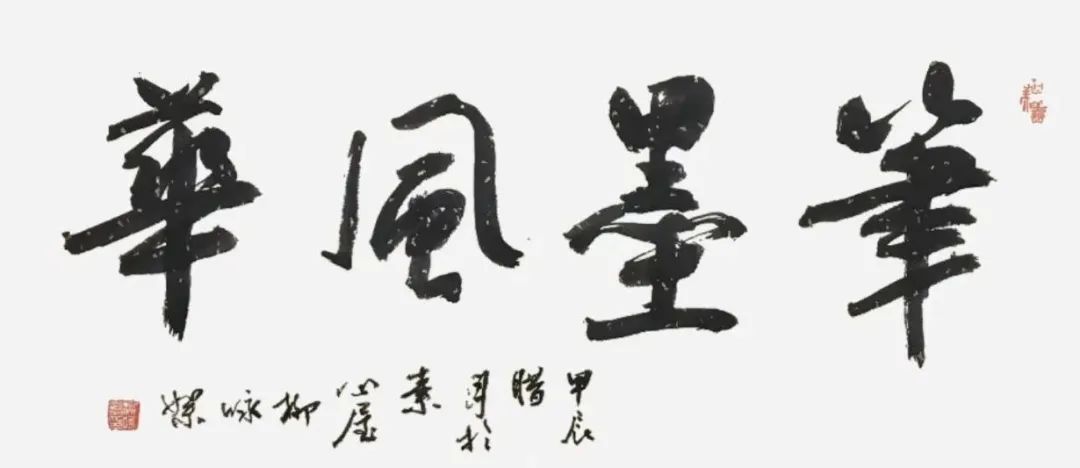 筆墨風華
甲辰腊月於素心屋柳咏絮